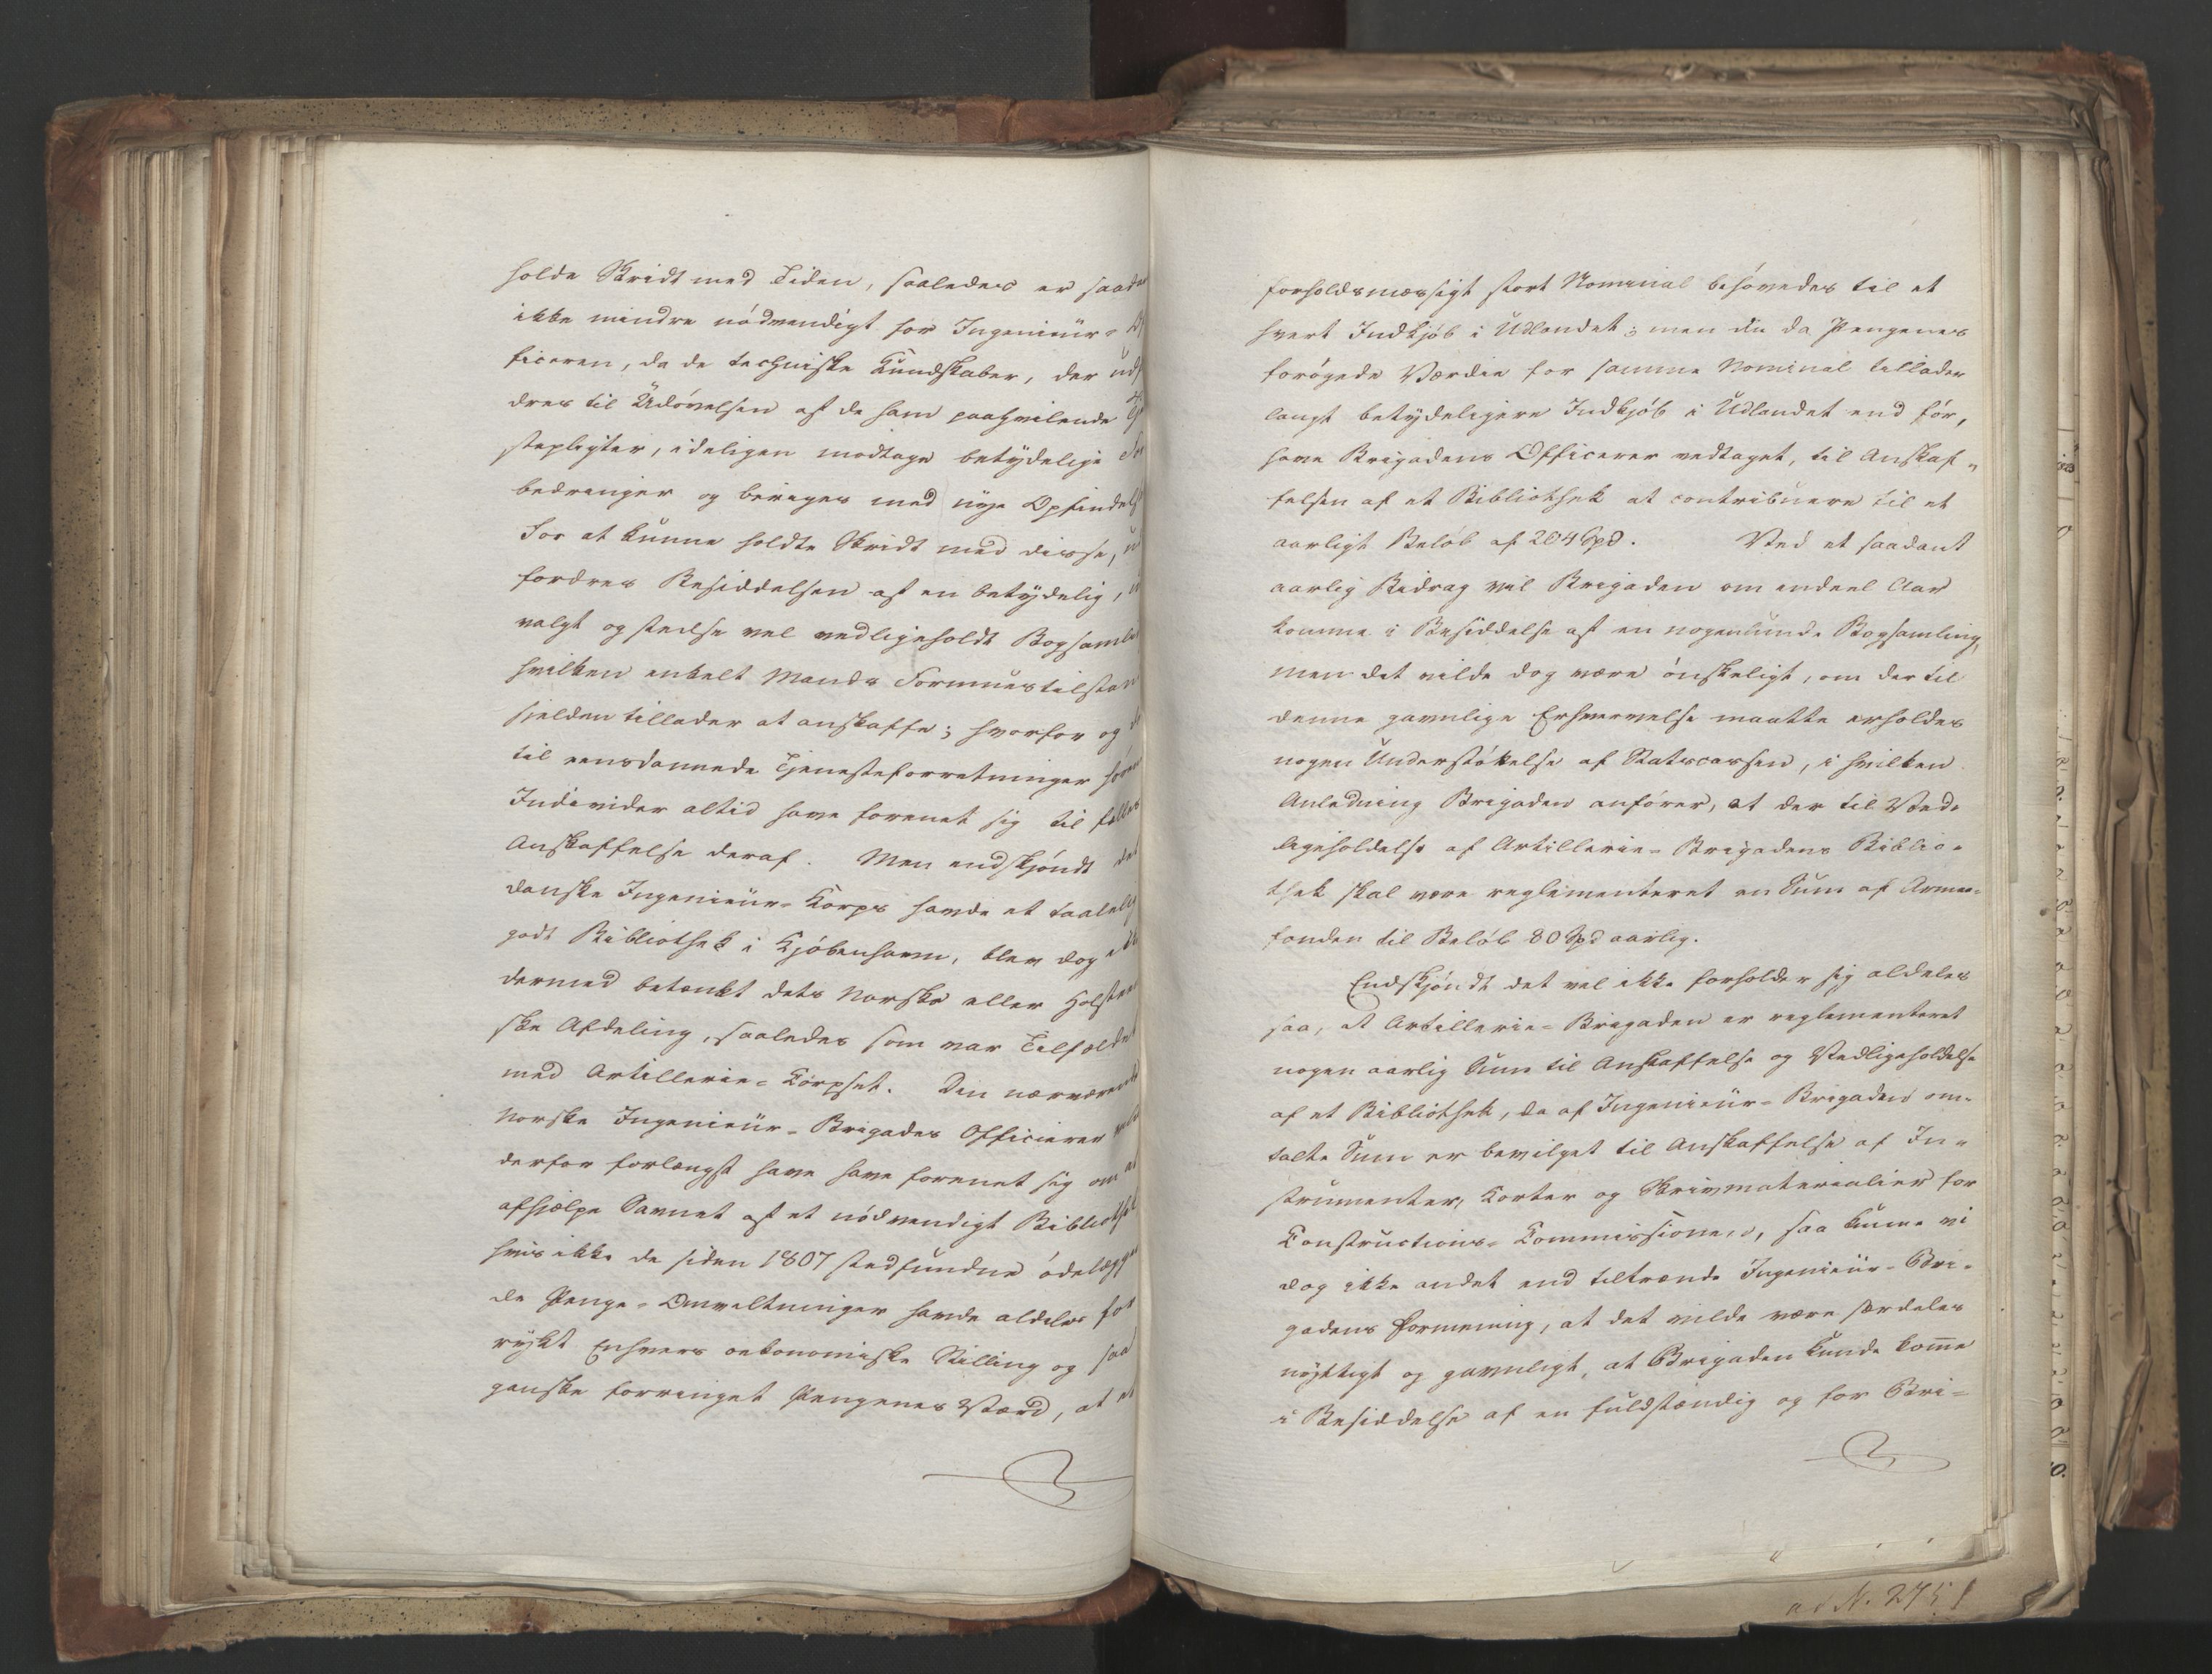 holde Skridt med Tiden, saaledes er saada
ikke mindre nödvendigt for Ingenieur-
ficeren, da de techniske Kundskaber, der udf
dres til Udövelsen af de ham paahvilende
stepligter, ideligen modtage betydelige For
bedringer og beriges med nye Opfindels
For at kunne holdte Skridt med disse, u
fordres Besiddelsen af en betydelig,
valgt og stedse vel vedligeholdt Bogsamli
hvilken enkelt Mands Formuestilstan
sjelden tillader at anskaffe; hvorfor og
til eensdannede Tjenesteforretninger
Individer altid have forenet sig til fælles
Anskaffelse deraf. Men endskjöndt det
danske Ingenieur-Korps havde et taalelig
godt Bibliothek i Kjöbenhavn, blev dog ikke
dermed betænkt dets Norske eller Holsteen
ske Afdeling, saaledes som var Tilfældet
med Artillerie-Corpset. Den nærværende
Norske Ingenieur-Brigades Officierer vilde
derfor forlængst have have forenet sig om at
afhjelpe Savnet af et nödvendigt Bibliothek
hvis ikke de siden 1807 stedfundne ödelægge
de Penge-Omveltninger havde aldeles for
rykt Enhvers oekonomiske Stilling og saa
ganske forringet Pengenes Værd, at et
forholdsmæssigt stort Nominal behövedes til et
hvert Indkjöb i Udlandet; men nu da Pengenes
forögede Værdie for samme Nominal tillader
langt betydeligere Indkjöb i Udlandet end för,
have Brigadens Officerer vedtaget, til Anskaf-
felsen af et Bibliothek at contribuere til et
aarligt Belöb af 204 Spd. Ved et saadant
aarlig Bidrag vil Brigaden om endeel Aar
komme i Besiddelse af en nogenlunde Bogsamling,
men det vilde dog være önskeligt, om der til
denne gavnlige Erhvervelse maatte erholdes
nogen Understöttelse af Statscassen, i hvilken
Anledning Brigaden anförer, at der til Ved-
ligeholdelse af Artillerie-Brigadens Biblio-
thek skal være reglementeret en Sum af Armee-
fonden til Belöb 80 Spd aarlig.
Endskjöndt det vel ikke forholder sig aldeles
saa, at Artillerie-Brigaden er reglementeret
nogen aarlig Sum til Anskaffelse og Vedligeholdelse
af et Bibliothek, da af Ingenieur-Brigaden om-
talte Sum er bevilget til Anskaffelse af In-
strumenter, Korter og Skrivmaterialier for
Constructions-Commissionen, saa kunne vi
dog ikke andet end tiltræde Ingenieur-Bri-
gadens Formening, at det vilde være særdeles
nyttigt og gavnligt, at Brigaden kunde kom̅e
i Besiddelse af en fuldstændig og for Bri-
ad N. 2751